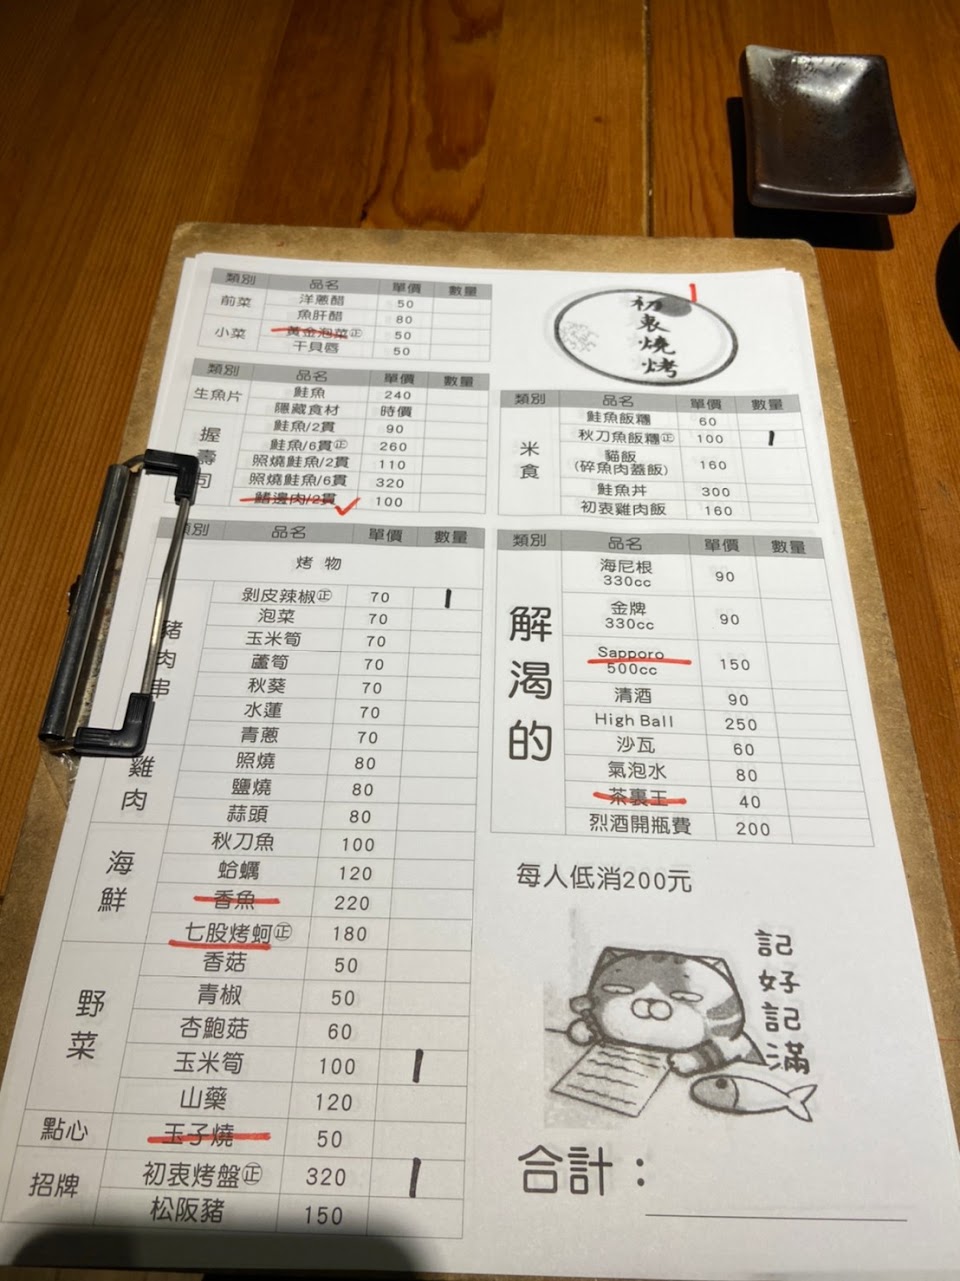 類別 品名 單價 數量
前菜 洋蔥醋 50
魚肝醋 80
小菜 黃金泡菜㊣ 50
干貝唇 50
類別 品名 單價 數量
生魚片 鮭魚 240
隱藏食材 時價
握壽司 鮭魚/2貫 90
鮭魚/6貫㊣ 260
照燒鮭魚/2貫 110
照燒鮭魚/6貫 320
鰭邊肉/2貫 100
類別 品名 單價 數量
烤物
豬肉串 剝皮辣椒㊣ 70 1
泡菜 70
玉米筍 70
蘆筍 70
秋葵 70
水蓮 70
青蔥 70
雞肉 照燒 80
鹽燒 80
蒜頭 80
海鮮 秋刀魚 100
蛤蠣 120
香魚 220
七股烤蚵㊣ 180
野菜 香菇 50
青椒 50
杏鮑菇 60
玉米筍 100 1
山藥 120
點心 玉子燒 50
招牌 初衷烤盤㊣ 320 1
松阪豬 150
1
初衷燒烤
類別 品名 單價 數量
米食 鮭魚飯糰 60
秋刀魚飯糰㊣ 100 1
貓飯
(碎魚肉蓋飯) 160
鮭魚丼 300
初衷雞肉飯 160
類別 品名 單價 數量
解渴的 海尼根
330cc 90
金牌
330cc 90
Sapporo
500cc 150
清酒 90
High Ball 250
沙瓦 60
氣泡水 80
茶裏王 40
烈酒開瓶費 200
每人低消200元
記好記滿
合計：